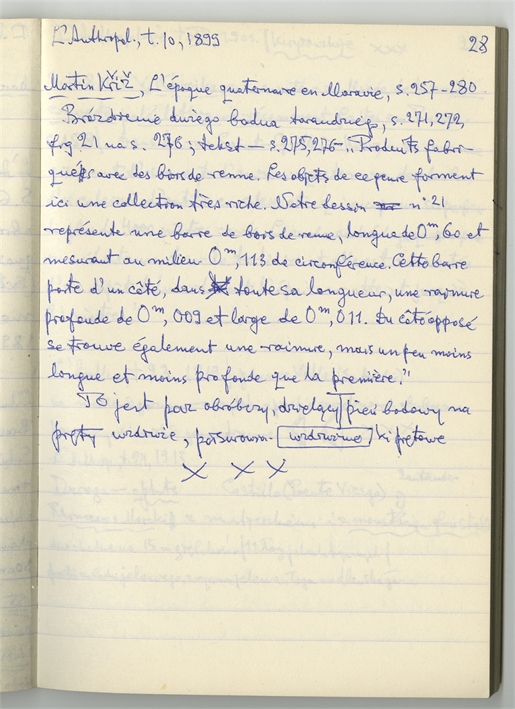 28
L'Anthropol., t. 10, 1899
Martin Křiž, L'époque quaternaire en Moravie, s. 257-280
dużego s. 271, 272,
fig. 21 na s. 276; tekst — s. 275, 276 — "Produits fabri-
qués avec des bois de renne. Les objets de ce genre forment
ici une collection très riche. Notre dessin n° 21
représente une barre de bois de renne, longue de 0ᵐ,60 et
mesurant au milieu 0ᵐ,113 de circonférence. Cette barre
porte d'un côté, dans toute sa longueur, une rainure
profonde de 0ᵐ,009 et large de 0ᵐ,011. Du côté opposé
se trouve également une rainure, mais un peu moins
longue et moins profonde que la première."
To jest par obróbczy, pień na
pręty wzdłuż, prętowe
X X X